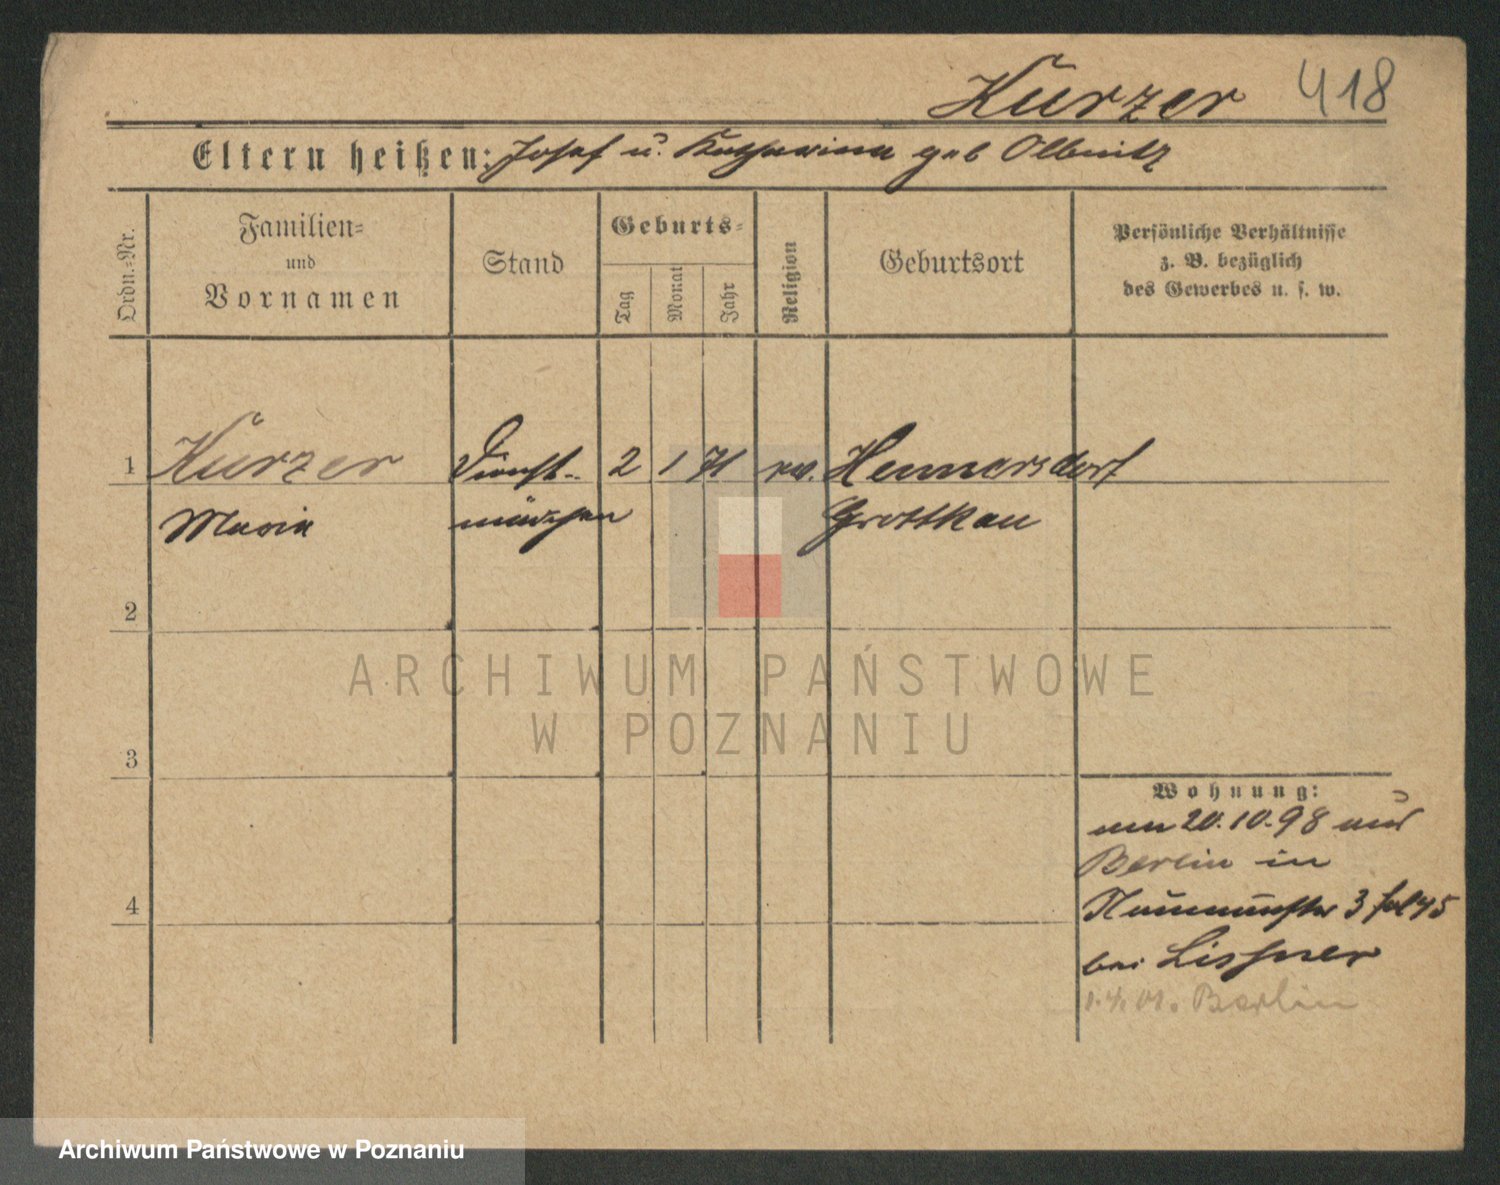 Kurzer 418
Eltern heißen: Josef u. Katharina geb Olbnitz
Ordn.-Nr.
Familien-
und
Vornamen
Stand
Geburts-
Tag
Monat
Jahr
Religion
Geburtsort
Persönliche Verhältnisse
z. B. bezüglich
des Gewerbes u. s. w.
1 Kurzer Dienst- 2 1 71 Hennersdorf
Maria mädchen Grottkau
2
3
4
Wohnung:
am 20.10.98 aus
Berlin in
3
bei Lissner
Berlin
ARCHIWUM PAŃSTWOWE
W POZNANIU
Archiwum Państwowe w Poznaniu